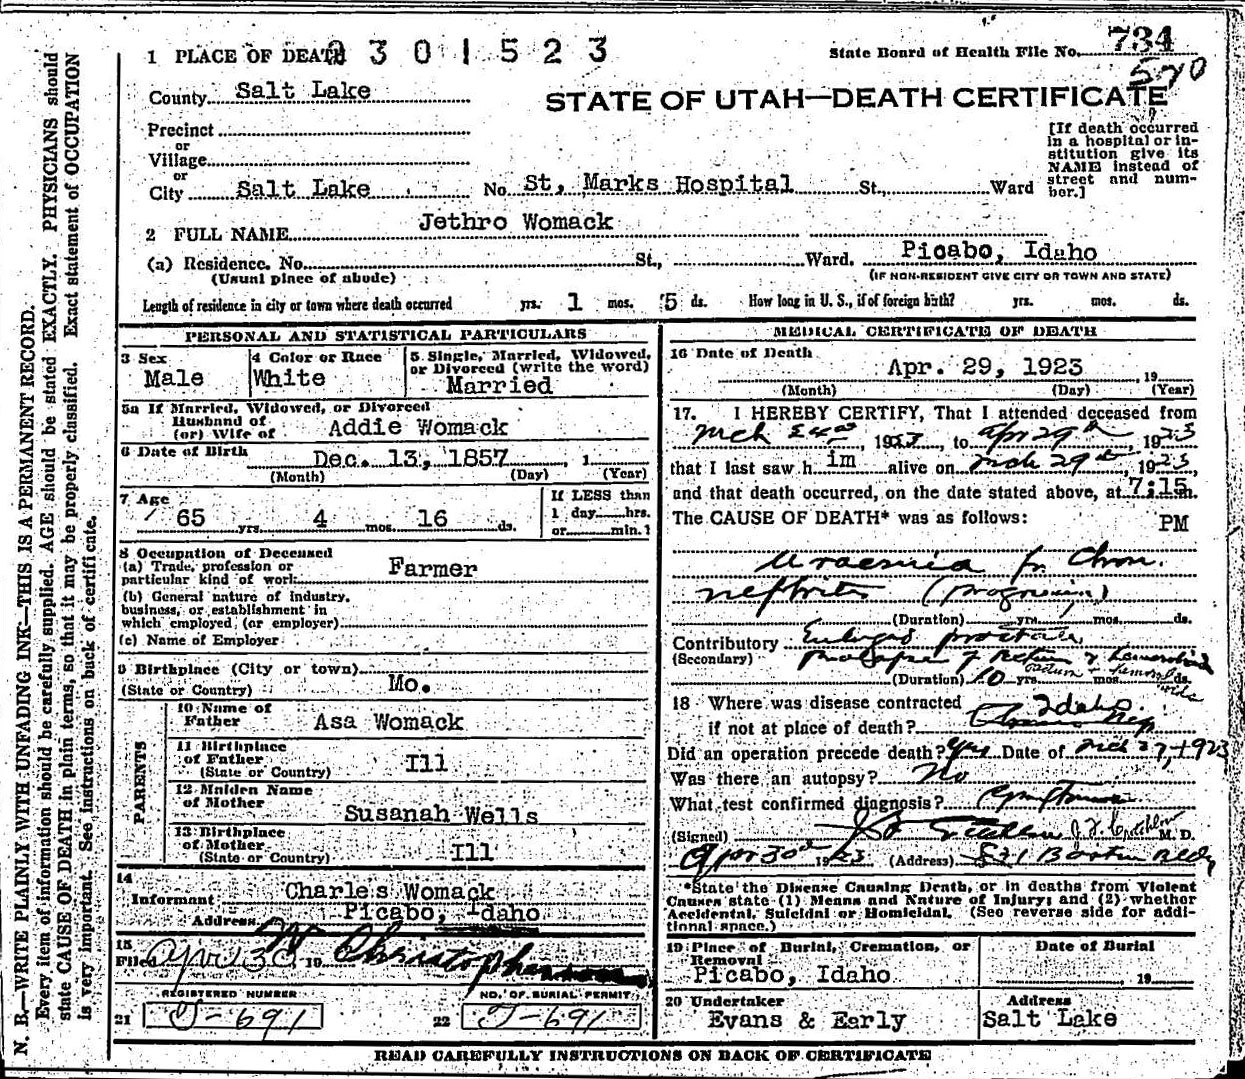 1 PLACE OF DEATH 2 3 0 1 5 2 3
State Board of Health File No. 734
570
County Salt Lake
STATE OF UTAH—DEATH CERTIFICATE
Precinct
or
Village
or
City Salt Lake No. St, Marks Hospital St., Ward
[If death occurred
in a hospital or in-
stitution give its
NAME instead of
street and num-
ber.]
2 FULL NAME Jethro Womack
(a) Residence. No. St., Ward. Picabo, Idaho
(Usual place of abode) (IF NON-RESIDENT GIVE CITY OR TOWN AND STATE)
Length of residence in city or town where death occurred yrs. 1 mos. 5 ds. How long in U. S., if of foreign birth? yrs. mos. ds.
PERSONAL AND STATISTICAL PARTICULARS
3 Sex
Male
4 Color or Race
White
5 Single, Married, Widowed,
or Divorced (write the word)
Married
5a If Married, Widowed, or Divorced
Husband of
(or) Wife of Addie Womack
6 Date of Birth Dec. 13, 1857, 1
(Month) (Day) (Year)
7 Age
65 yrs. 4 mos. 16 ds.
If LESS than
1 day hrs.
or min.?
8 Occupation of Deceased
(a) Trade, profession or
particular kind of work Farmer
(b) General nature of industry,
business, or establishment in
which employed (or employer)
(c) Name of Employer
9 Birthplace (City or town)
(State or Country) Mo.
PARENTS
10 Name of
Father Asa Womack
11 Birthplace
of Father
(State or Country) Ill
12 Maiden Name
of Mother
Susanah Wells
13 Birthplace
of Mother
(State or Country) Ill
14
Informant Charles Womack
Address Picabo, Idaho
15
Filed Apr 30 19 Christophersen
REGISTERED NUMBER
21 J-691
NO. OF BURIAL PERMIT
22 J-691
MEDICAL CERTIFICATE OF DEATH
16 Date of Death
Apr. 29, 1923, 19
(Month) (Day) (Year)
17. I HEREBY CERTIFY, That I attended deceased from
Mch 24th 1923, to Apr 29th, 1923
that I last saw him alive on Mch 29th, 1923
and that death occurred, on the date stated above, at 7:15 m.
The CAUSE OF DEATH* was as follows: PM
Uraemia fr Chron.
nephritis (progressive)
(Duration) yrs. mos. ds.
Contributory Enlarged prostate
(Secondary) Prolapse of Rectum & hemorrhoids
(Duration) 10 yrs. mos. ds.
rectum hemorrhoids
18 Where was disease contracted Idaho
if not at place of death? Chronic Nep
Did an operation precede death? Yes Date of Mch 27, 1923
Was there an autopsy? No
What test confirmed diagnosis? Symptoms
(Signed) J. F. Critchlow M. D.
Apr 30th 1923 (Address) 821 Boston Bldg
*State the Disease Causing Death, or in deaths from Violent
Causes state (1) Means and Nature of Injury; and (2) whether
Accidental, Suicidal or Homicidal. (See reverse side for addi-
tional space.)
19 Place of Burial, Cremation, or
Removal
Picabo, Idaho
Date of Burial
19
20 Undertaker
Evans & Early
Address
Salt Lake
READ CAREFULLY INSTRUCTIONS ON BACK OF CERTIFICATE
N. B.—WRITE PLAINLY WITH UNFADING INK—THIS IS A PERMANENT RECORD.
Every item of information should be carefully supplied. AGE should be stated EXACTLY. PHYSICIANS should
state CAUSE OF DEATH in plain terms, so that it may be properly classified. Exact statement of OCCUPATION
is very important. See instructions on back of certificate.